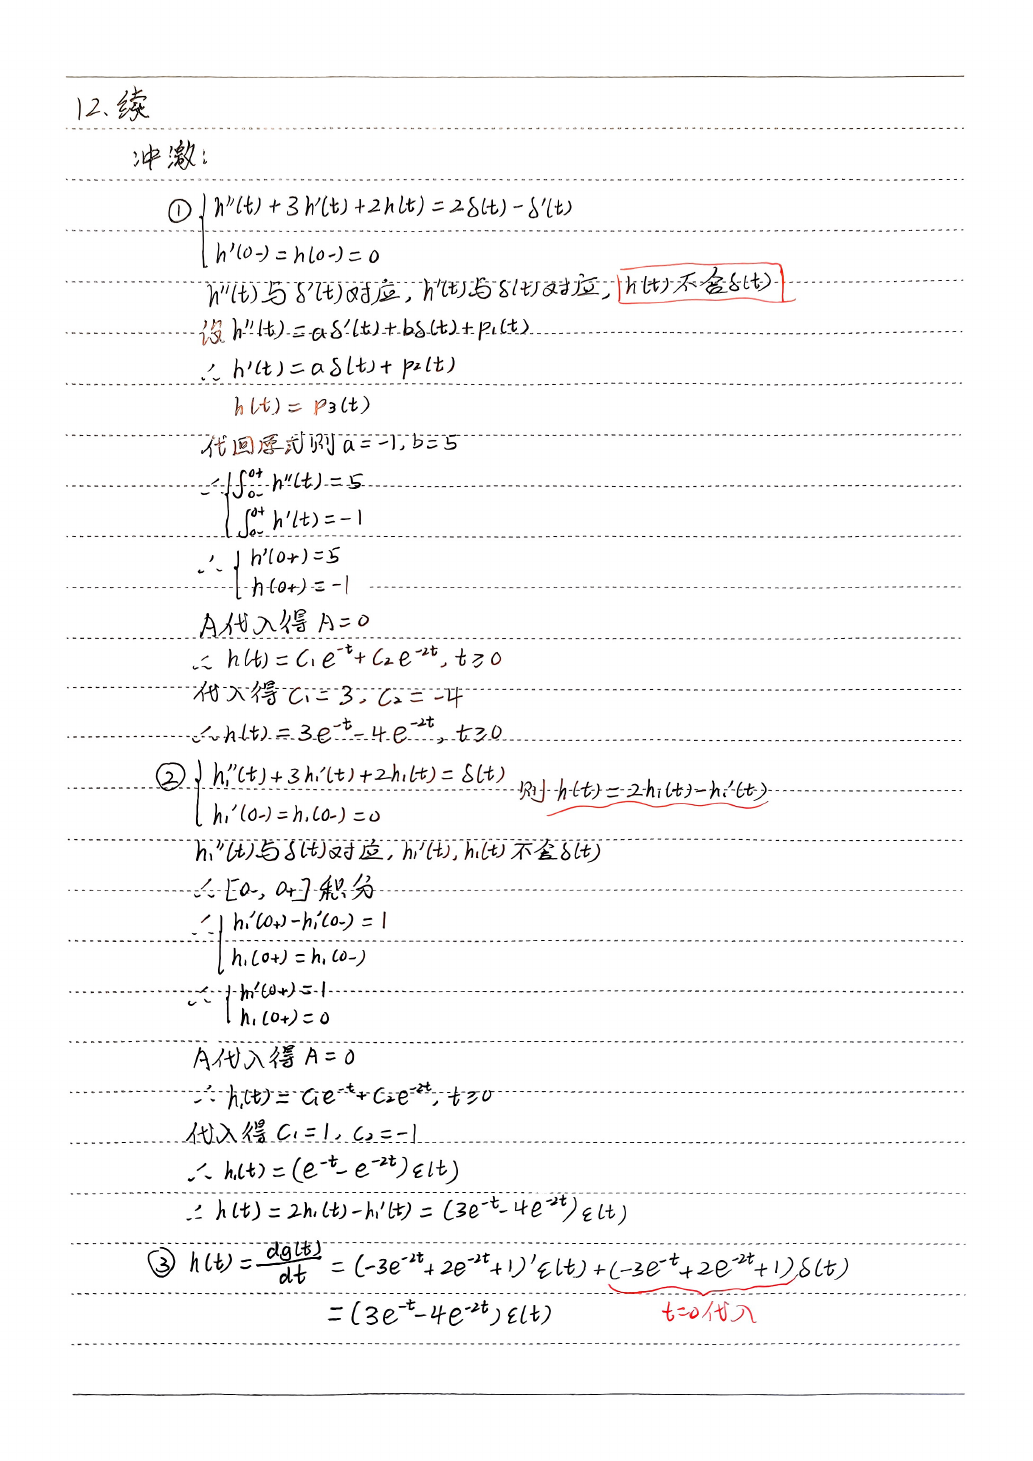 12、续
冲激：
① { h''(t)+3h'(t)+2h(t)=2δ(t)-δ'(t)
h'(0-)=h(0-)=0
h''(t)与δ'(t)对应, h'(t)与δ(t)对应, h(t)不含δ(t)
设h''(t)=aδ'(t)+bδ(t)+p₁(t)
∴ h'(t)=aδ(t)+p₂(t)
h(t)=p₃(t)
代回原式则a=-1, b=5
∴ { ∫₀₋⁰⁺ h''(t)=5
∫₀₋⁰⁺ h'(t)=-1
∴ { h'(0+)=5
h(0+)=-1
A代入得 A=0
∴ h(t)=C₁e⁻ᵗ+C₂e⁻²ᵗ, t≥0
代入得 C₁=3, C₂=-4
∴ h(t)=3e⁻ᵗ-4e⁻²ᵗ, t≥0
② { h₁''(t)+3h₁'(t)+2h₁(t)=δ(t) 则 h(t)=2h₁(t)-h₁'(t)
h₁'(0-)=h₁(0-)=0
h₁''(t)与δ(t)对应, h₁'(t), h₁(t)不含δ(t)
∴ [0-, 0+]积分
∴ { h₁'(0+)-h₁'(0-)=1
h₁(0+)=h₁(0-)
∴ { h₁'(0+)=1
h₁(0+)=0
A代入得 A=0
∴ h₁(t)=C₁e⁻ᵗ+C₂e⁻²ᵗ, t≥0
代入得 C₁=1, C₂=-1
∴ h₁(t)=(e⁻ᵗ-e⁻²ᵗ)ε(t)
∴ h(t)=2h₁(t)-h₁'(t)=(3e⁻ᵗ-4e⁻²ᵗ)ε(t)
③ h(t)=dg(t)/dt=(-3e⁻²ᵗ+2e⁻²ᵗ+1)'ε(t)+(-3e⁻ᵗ+2e⁻²ᵗ+1)δ(t)
=(3e⁻ᵗ-4e⁻²ᵗ)ε(t) t=0代入